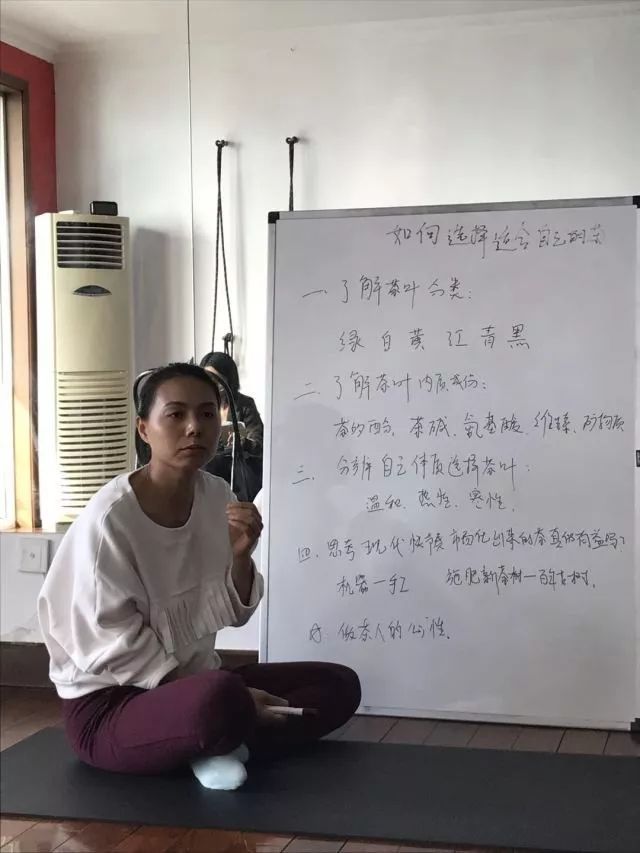 如何选择适合自己的茶
一. 了解茶叶分类:
绿 白 黄 红 青 黑
二. 了解茶叶内质成份:
茶的酚、茶碱、氨基酸、维生素、矿物质
三. 分辨自己体质选择茶叶:
温和、热性、寒性.
四. 思考现代快速市场化出来的茶真的有益吗?
机器一手工 施肥新茶树一百年古树.
做茶人的心性.